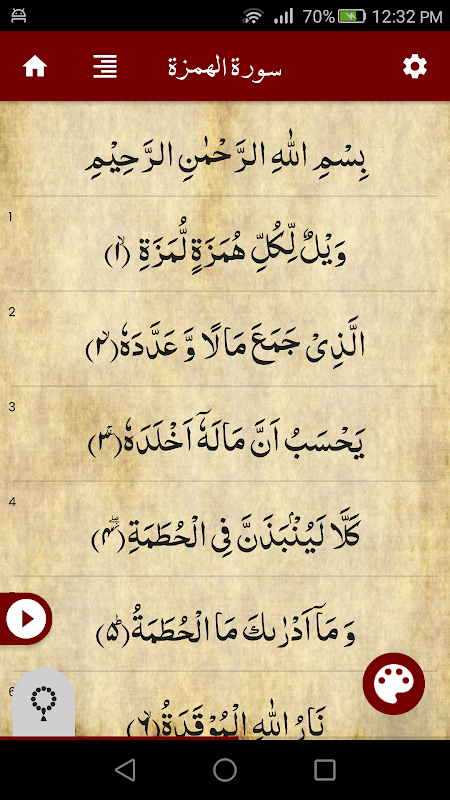 70% 12:32 PM
سورة الهمزة
بِسْمِ اللهِ الرَّحْمٰنِ الرَّحِيْمِ
1
وَيْلٌ لِّكُلِّ هُمَزَةٍ لُّمَزَةِ ۙ﴿۱﴾
2
الَّذِیْ جَمَعَ مَالًا وَّ عَدَّدَهٗ ۙ﴿۲﴾
3
یَحْسَبُ اَنَّ مَالَهٗۤ اَخْلَدَهٗ ۚ﴿۳﴾
4
كَلَّا لَیُنْۢبَذَنَّ فِی الْحُطَمَةِ ۖ﴿۴﴾
وَ مَاۤ اَدْرٰىكَ مَا الْحُطَمَةُ ؕ﴿۵﴾
6
نَارُ اللهِ الْمُوْقَدَةُ ۙ﴿۶﴾